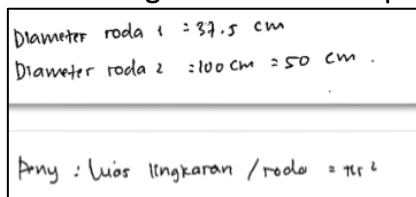 Diameter roda 1 = 37.5 cm
Diameter roda 2 = 100 cm = 50 cm .
Peny : Luas lingkaran / roda = πr²